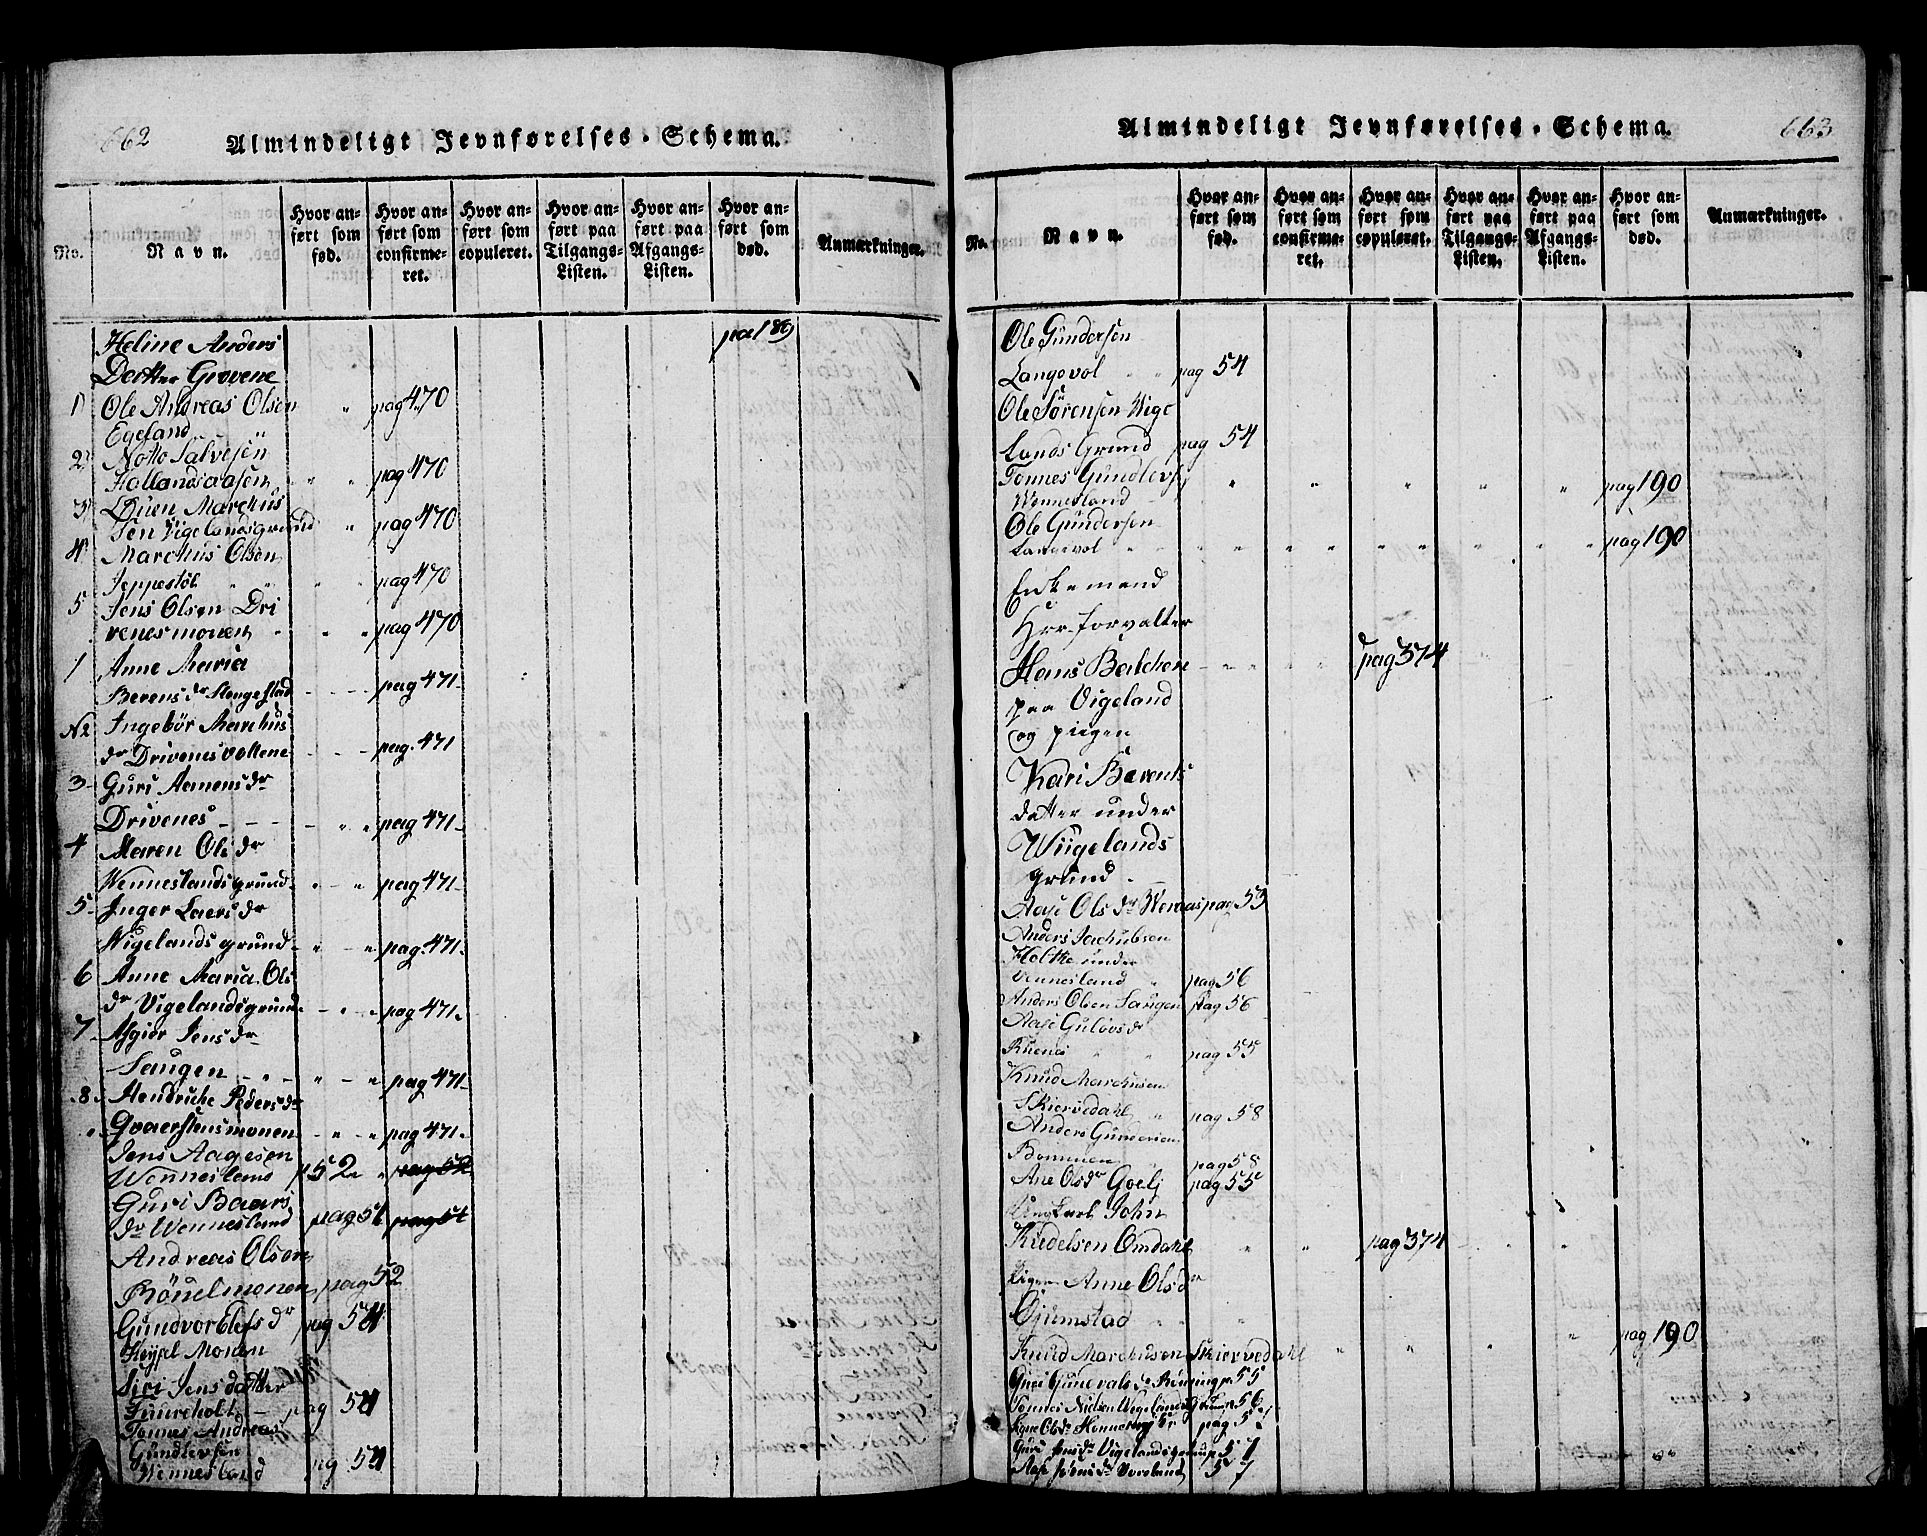 662
Almindeligt Jevnførelses-Schema.
No.
Navn.
Hvor anført som fød.
Hvor anført som confirmeret.
Hvor anført som copuleret.
Hvor anført paa Tilgangs-Listen.
Hvor anført paa Afgangs-Listen.
Hvor anført som død.
Anmærkninger.
Heline Anders
Datter Grovene pa 189
1 Ole Andreas Olsen pag 470
Egeland
2 Notto Salvesen
Hollandsaasen pag 470
3 Marchus
Sen Vigelandsgrund pag 470
4 Marchus Olsen
Jeppestøl pag 470
5 Jens Olsen Dri
venesmonen pag 470
1 Anne Maria
Berens dr Slengestad pag 471
No 2 Ingebør Marchus
dr Drivenesvollene pag. 471
3 Guri Aamens dr
Drivenes pag 471
4 Maren Ols dr
Wenneslandsgrund pag 471
5 Inger Laers dr
Wigelandsgrund pag. 471
6 Anne Maria Ols
dr Vigelandsgrund pag 471
7 Asgier Jens dr
Saugen pag 471
8 Hendriche Peders dr
Qvaerstensmonen pag 471
Jens Aagesen
Wennesland p 52 pag 52
Guri Baars
dr Wennesland pag 51 pag 51
Andreas Olsen
Röuelmonen pag 52
Gundvor Elefs dr pag 54
Keypel Monen
Siri Jens datter
Fuureholt pag 54
Tonnes Andreas
Gundlevsen
Wennesland pag 54
663
Almindeligt Jevnførelses-Schema.
No.
Navn.
Hvor anført som fød.
Hvor anført som confirmeret.
Hvor anført som copuleret.
Hvor anført paa Tilgangs-Listen.
Hvor anført paa Afgangs-Listen.
Hvor anført som død.
Anmærkninger.
Ole Gundersen
Langevol pag 54
Ole Sörensen Vige
Lands Grund pag 54
Tonnes Gundlevs
Wennesland pag 190
Ole Gundersen
Langevol pag 190
Enkemand
Hrr. forvalter
Hans Balchen pag 374
paa Vigeland
og pigen
Kari Barents
datter under
Wiigelands
grund
Aase Ols dr Weraas pag 53
Anders Jachobsen
Holtke under
Vennesland pag 56
Anders Olsen Saugen pag 56
Aase Gulovs dr
Kuenes pag 55
Knud Marchusen
Skiervedahl pag 58
Anders Gundersen
Bommen pag 58
Ane Ols dr Goelj pag 55
Ungkarl John
Kudelsen Omdahl pag 374
Pigen Anne Ols dr
Gjumstad
Knud Marchusen Skiervedahl pag 190
Guri Gunevals dr Rönning p. 55
Tonnes Nielsen Vigelands Grund 56
Ols dr Honneraas pag 57
Guri Jens dr Vigelandsgrund p 57
Aase Jörens dr Voreland 57